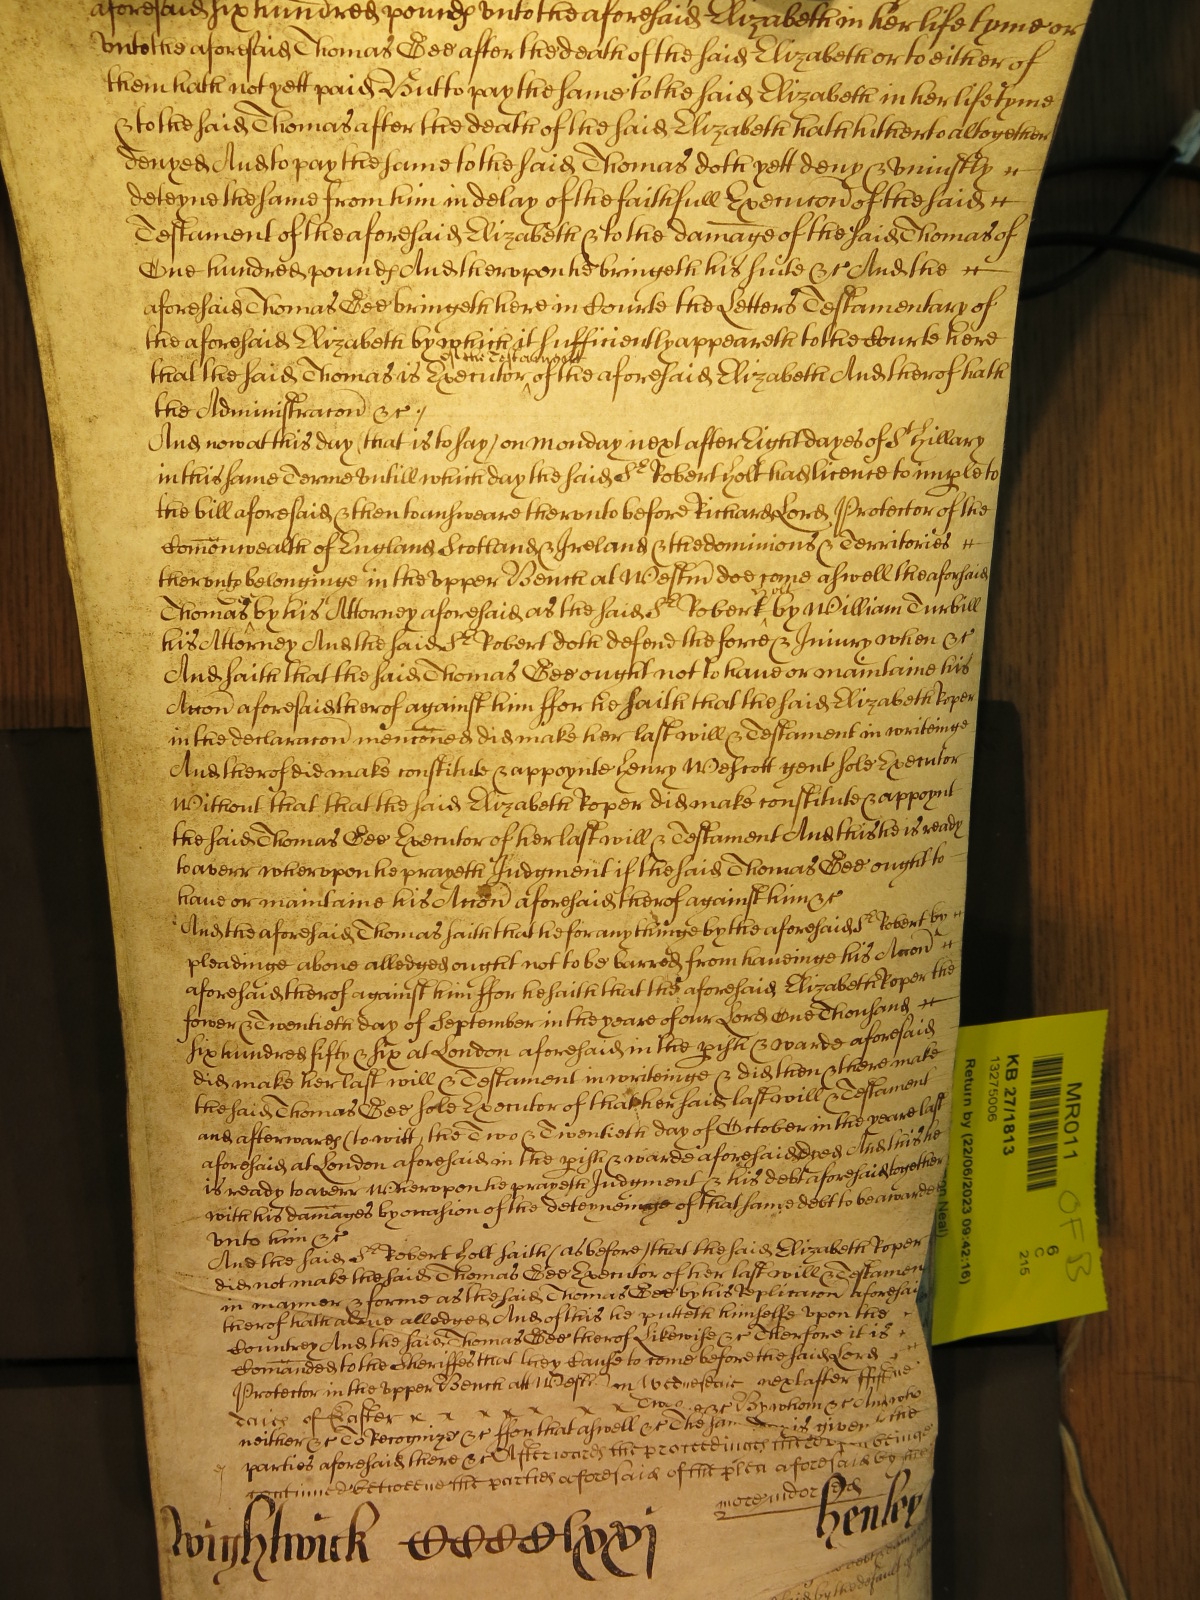 aforesaid six hundred pounds vnto the aforesaid Elizabeth in her life tyme or
vnto the aforesaid Thomas Gee after the death of the said Elizabeth or to either of
them hath not yett paid But to pay the same to the said Elizabeth in her life tyme
& to the said Thomas after the death of the said Elizabeth hath hitherto altogether
denyed And to pay the same to the said Thomas doth yett deny & vniustly
deteyne the same from him in delay of the faithfull Execucon of the said
Testament of the aforesaid Elizabeth & to the damage of the said Thomas of
One hundred pounds And thervpon he bringeth his suite &c And the
aforesaid Thomas Gee bringeth here in Courte the Letters Testamentary of
the aforesaid Elizabeth by which it sufficiently appeareth to the Courte here
of the Testament
that the said Thomas is Executor of the aforesaid Elizabeth And therof hath
the Administracon &c
And now at this day (that is to say) on Monday next after Eight dayes of St Hillary
in this same Terme vntill which day the said Sr Robert Holt had licence to imple to
the bill aforesaid & then to answeare therevnto before Richard Lord Protector of the
Comonwealth of England Scotland & Ireland & the dominions & Territories
thervnto belonginge in the vpper Bench at Westm doe come aswell the aforesaid
Thomas by his Attorney aforesaid as the said Sr Robert by William Turbill
his Attorney And the said Sr Robert doth defend the force & Iniury when &c
And saith that the said Thomas Gee ought not to haue or maintaine his
Accon aforesaid therof against him ffor he saith that the said Elizabeth Roper
in the declaracon mencioned did make her last will & Testament in writeinge
And therof did make constitute & appoynte Henry Wescott gent sole Executor
Without that that the said Elizabeth Roper did make constitute & appoynt
the said Thomas Gee Executor of her last will & Testament And this he is ready
to averr wherevpon he prayeth Iudgment if the said Thomas Gee ought to
haue or maintaine his Accon aforesaid therof against him &c
And the aforesaid Thomas saith that he for any thinge by the aforesaid Sr Robert by
pleadinge aboue alledged ought not to be barred from haueinge his Accon
aforesaid therof against him ffor he saith that the aforesaid Elizabeth Roper the
fower & Twentieth day of September in the yeare of our Lord One Thousand
six hundred fifty & six at London aforesaid in the pish & warde aforesaid
did make her last will & Testament in writeinge & did then & there make
the said Thomas Gee sole Executor of that her said last will & Testament
and afterwards (to witt) the Two & Twentieth day of October in the yeare last
aforesaid at London aforesaid in the pish & warde aforesaid dyed And this he
is ready to averr Wherevpon he prayeth Iudgment & his debt aforesaid together
with his damages by occasion of the deteyneinge of that same debt to be awarded
vnto him &c
And the said Sr Robert Holt saith (as before) that the said Elizabeth Roper
did not make the said Thomas Gee Executor of her last will & Testament
in manner & forme as the said Thomas Gee by his Replicacon aforesaid
therof hath aboue alledged And of this he putteth himselfe vpon the
Countrey And the said Thomas Gee therof Likewise &c Therfore it is
Comanded to the Sheriffes that they Cause to come before the said Lord
Protector in the vpper Bench att Westm on Wednesdaie next after fifteene
daies of Easter Twelve &c By whom &c And who
neither &c To Recognize &c ffor that aswell &c The same is given to the
parties aforesaid there &c Afterwards the proceedinges therevpon beinge
continued betweene the parties aforesaid of the plea aforesaid by the
more indorsed
Wightwick CCCClxxvj Henley
MR011
6
C
215
KB 27/1813
13275006
Return by (22/06/2023 09:42:16)
Neal)
OF B